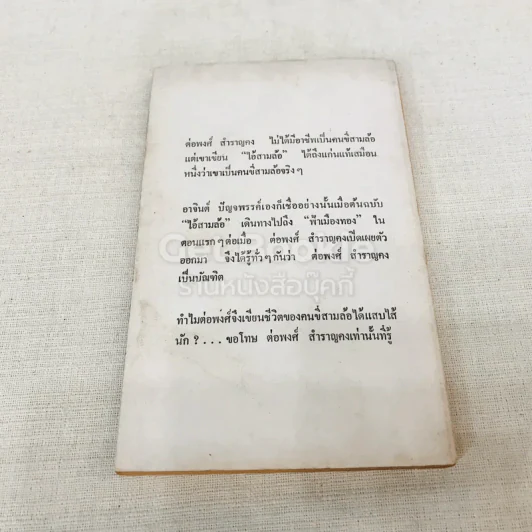 ต่อพงศ์ สำราญคง ไม่ได้มีอาชีพเป็นคนขี่สามล้อ
แต่เขาเขียน “ไอ้สามล้อ” ได้ถึงแก่นแท้เสมือน
หนึ่งว่าเขาเป็นคนขี่สามล้อจริงๆ
อาจินต์ ปัญจพรรค์เองก็เชื่ออย่างนั้นเมื่อต้นฉบับ
“ไอ้สามล้อ” เดินทางไปถึง “ฟ้าเมืองทอง” ใน
ตอนแรกๆ ต่อเมื่อ ต่อพงศ์ สำราญคงเปิดเผยตัว
ออกมา จึงได้รู้ทั่วๆ กันว่า ต่อพงศ์ สำราญคง
เป็นบัณฑิต
ร้านหนังสือบุ๊คกี้
ทำไมต่อพงศ์จึงเขียนชีวิตของคนขี่สามล้อได้แสบไส้
นัก ?... ขอโทษ ต่อพงศ์ สำราญคงเท่านั้นที่รู้